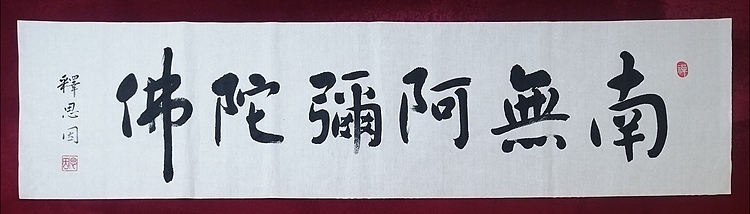 南無阿彌陀佛
釋思因